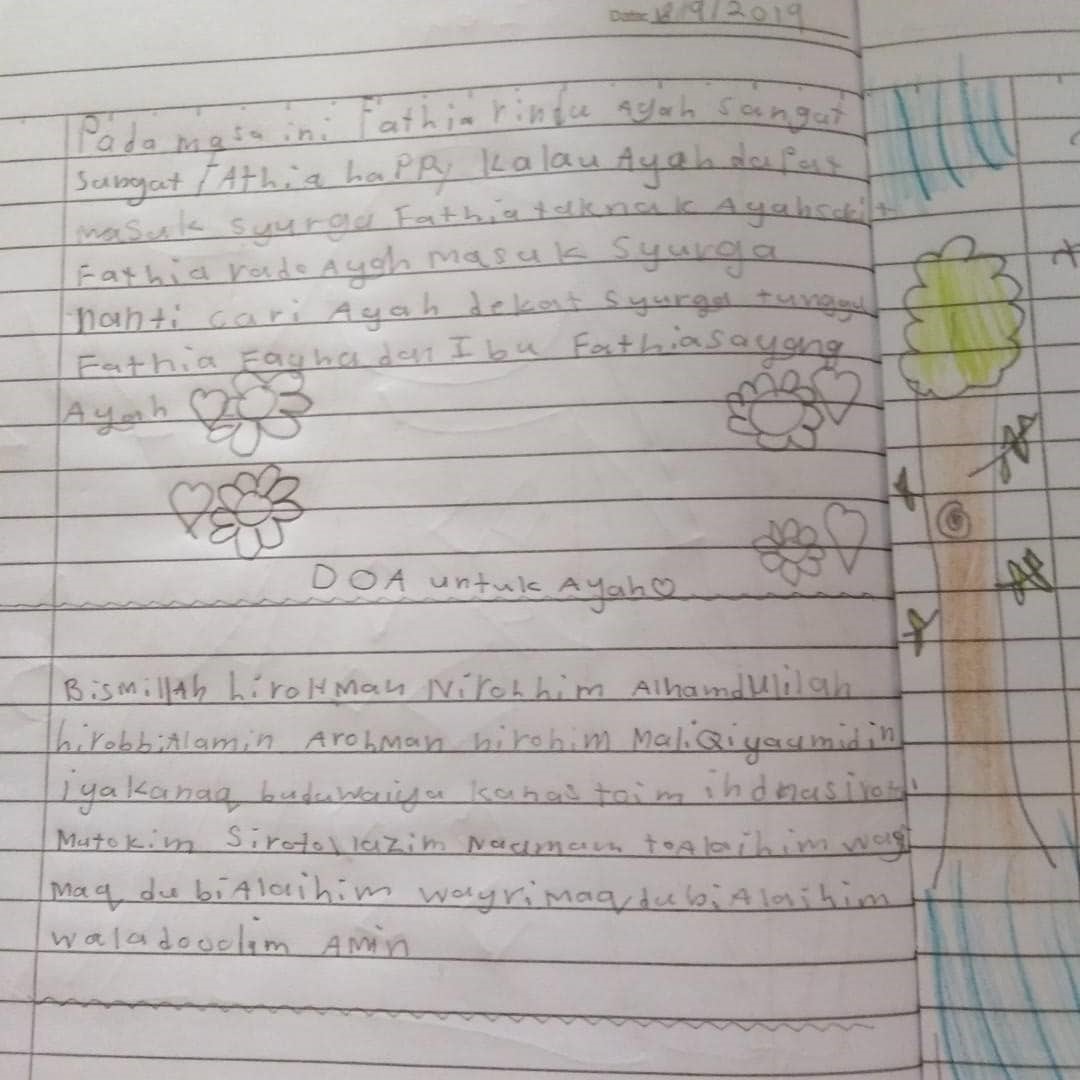 Date: 18/9/2019
Pada masa ini Fathia rindu Ayah sangat
sangat FAthia haPPy kalau Ayah dapat
masuk syurga Fathia taknak Ayah sakit
Fathia rado Ayah masuk syurga
nanti cari Ayah dekat syurga tunggu
Fathia Fayha dan Ibu Fathia sayang
Ayah
DOA untuk Ayah
BismillAh hiroHman Nirohhim AlhamdUlilah
hirobbiAlamin Arohman hirohim MaliQiyaumidin
iyakanaq buduwaiya kanastoim ihdnasirot
Mutokim Sirotollazim Naamaun toAlaihim way
Maq du biAlaihim wayrimaqdubiAlaihim
waladooolim AMin